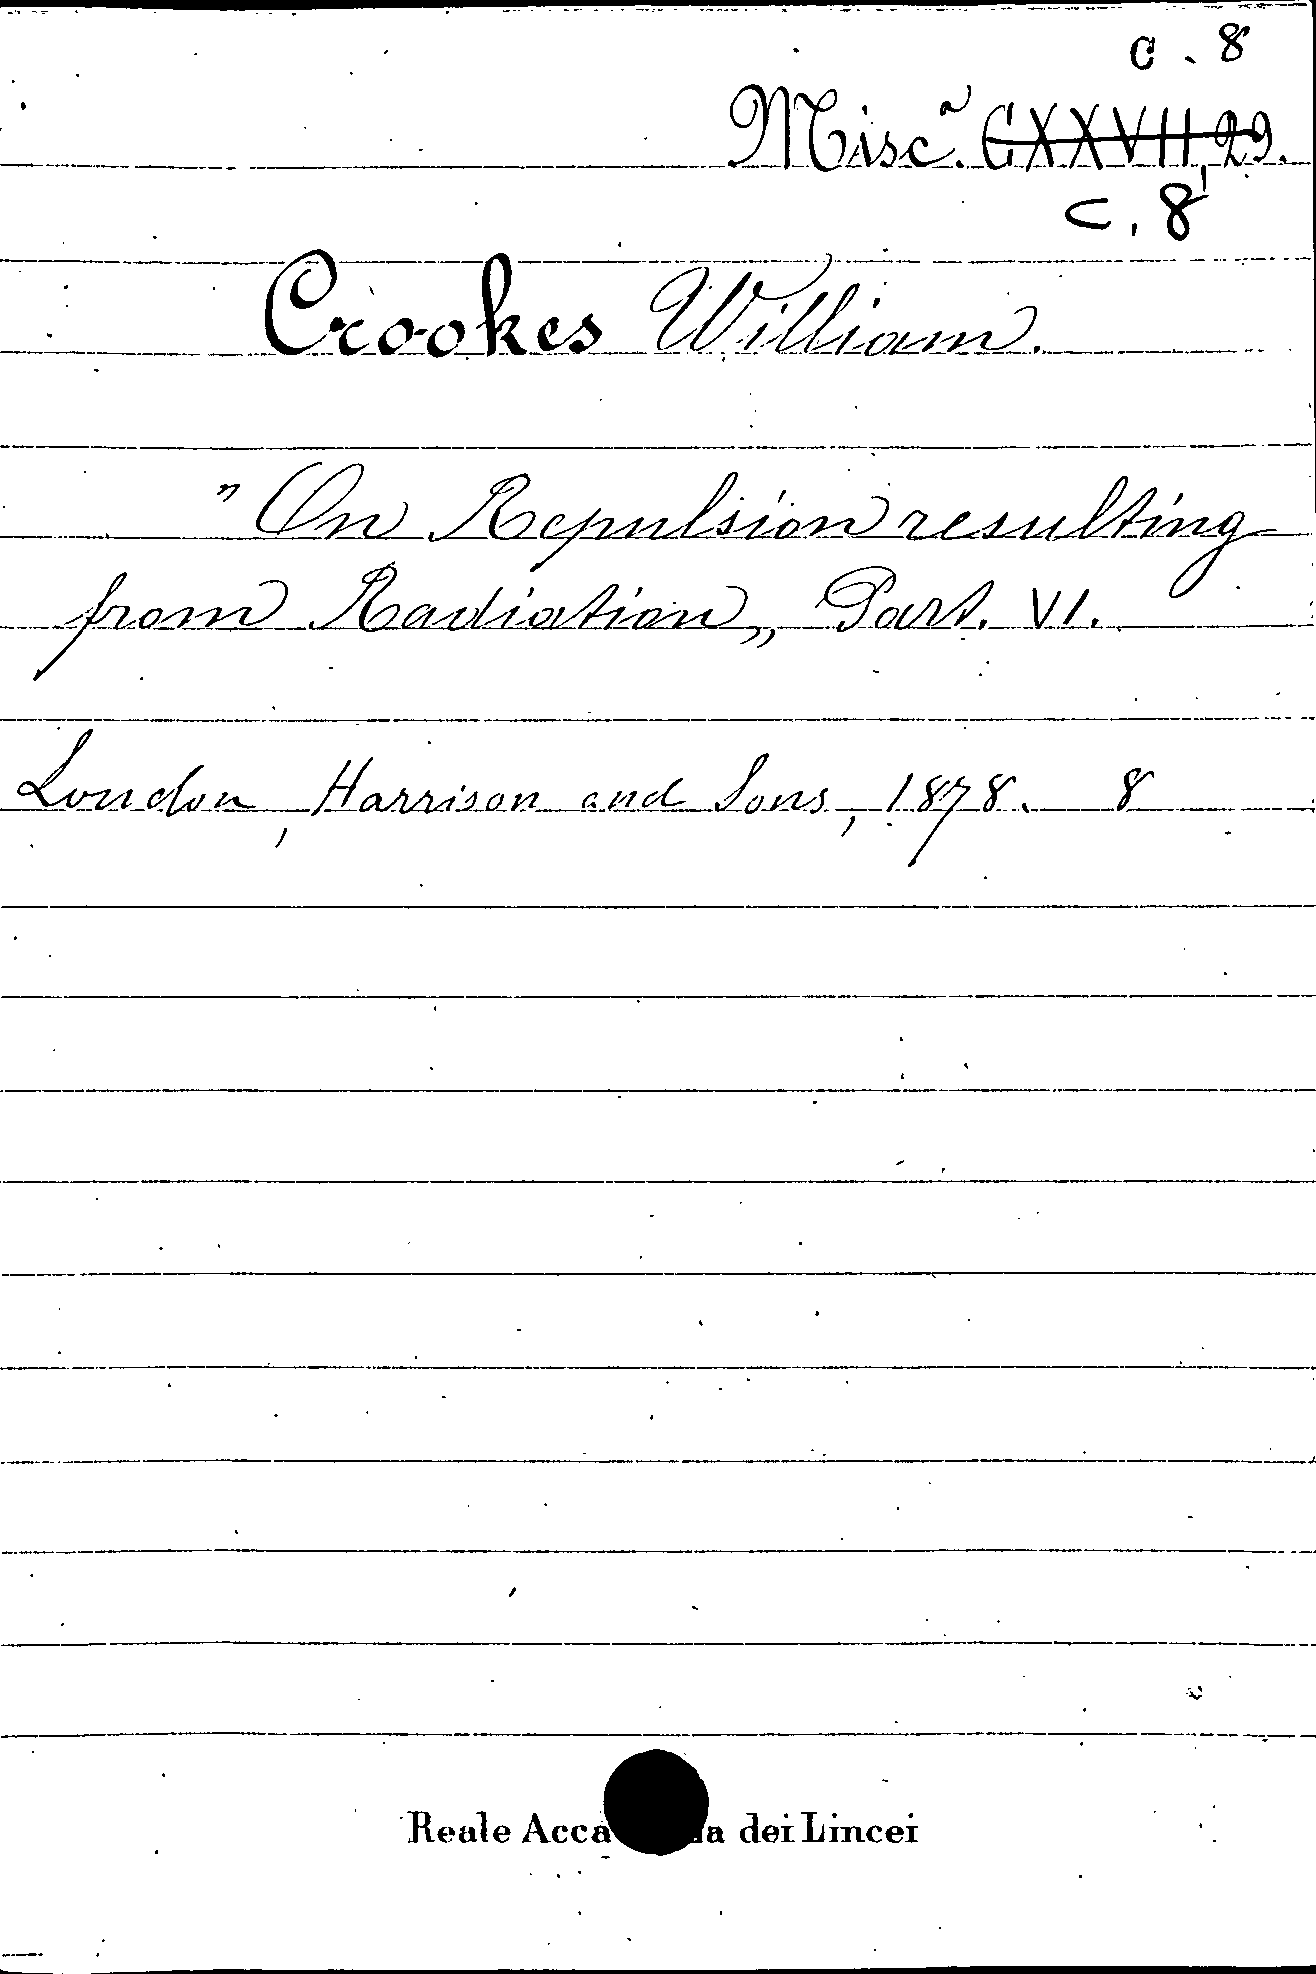 c. 8
Misc.ª CXXVII, 29.
c. 8
Crookes William.
"On Repulsion resulting
from Radiation„ Part. VI.
London, Harrison and Sons, 1878. 8
Reale Acca a dei Lincei